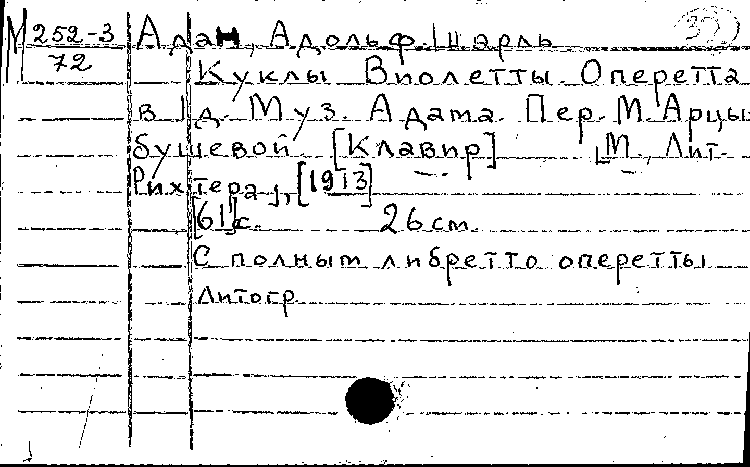 М 252-3 Адан, Адольф. Шарль
72 Куклы Виолетты. Оперетта
в 1 д. Муз. Адана. Пер. М. Арцы-
бушевой. [Клавир] [М., Лит.
Рихтера], [1913]
[61] с. 26 см.
С полным либретто оперетты
Литогр.